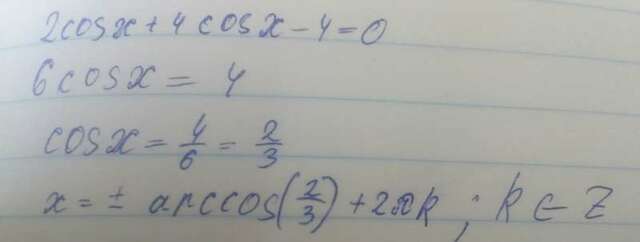 2cosx + 4cosx - 4 = 0
6cosx = 4
cosx = 4/6 = 2/3
x = ± arccos(2/3) + 2πk ; k ∈ Z